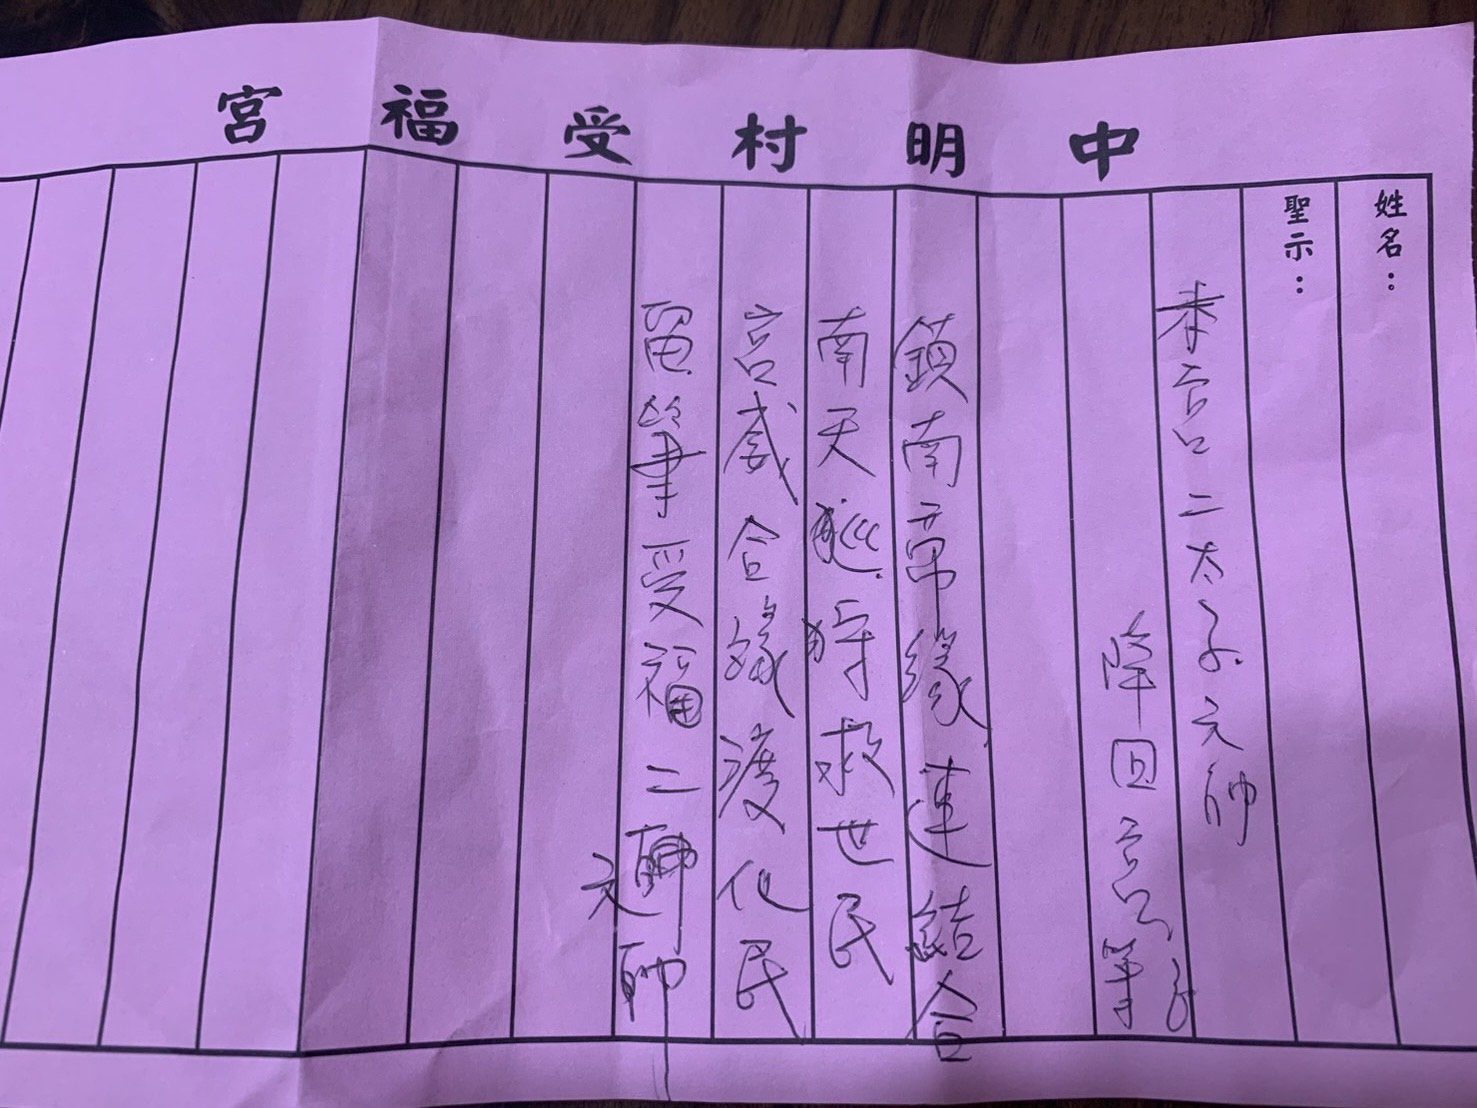 中明村受福宮
姓名：
聖示：
本宮二太子元帥
降回宮筆
鎮南帝緣連結合
南天巡狩救世民
宮威合緣渡化民
留筆受福二元帥